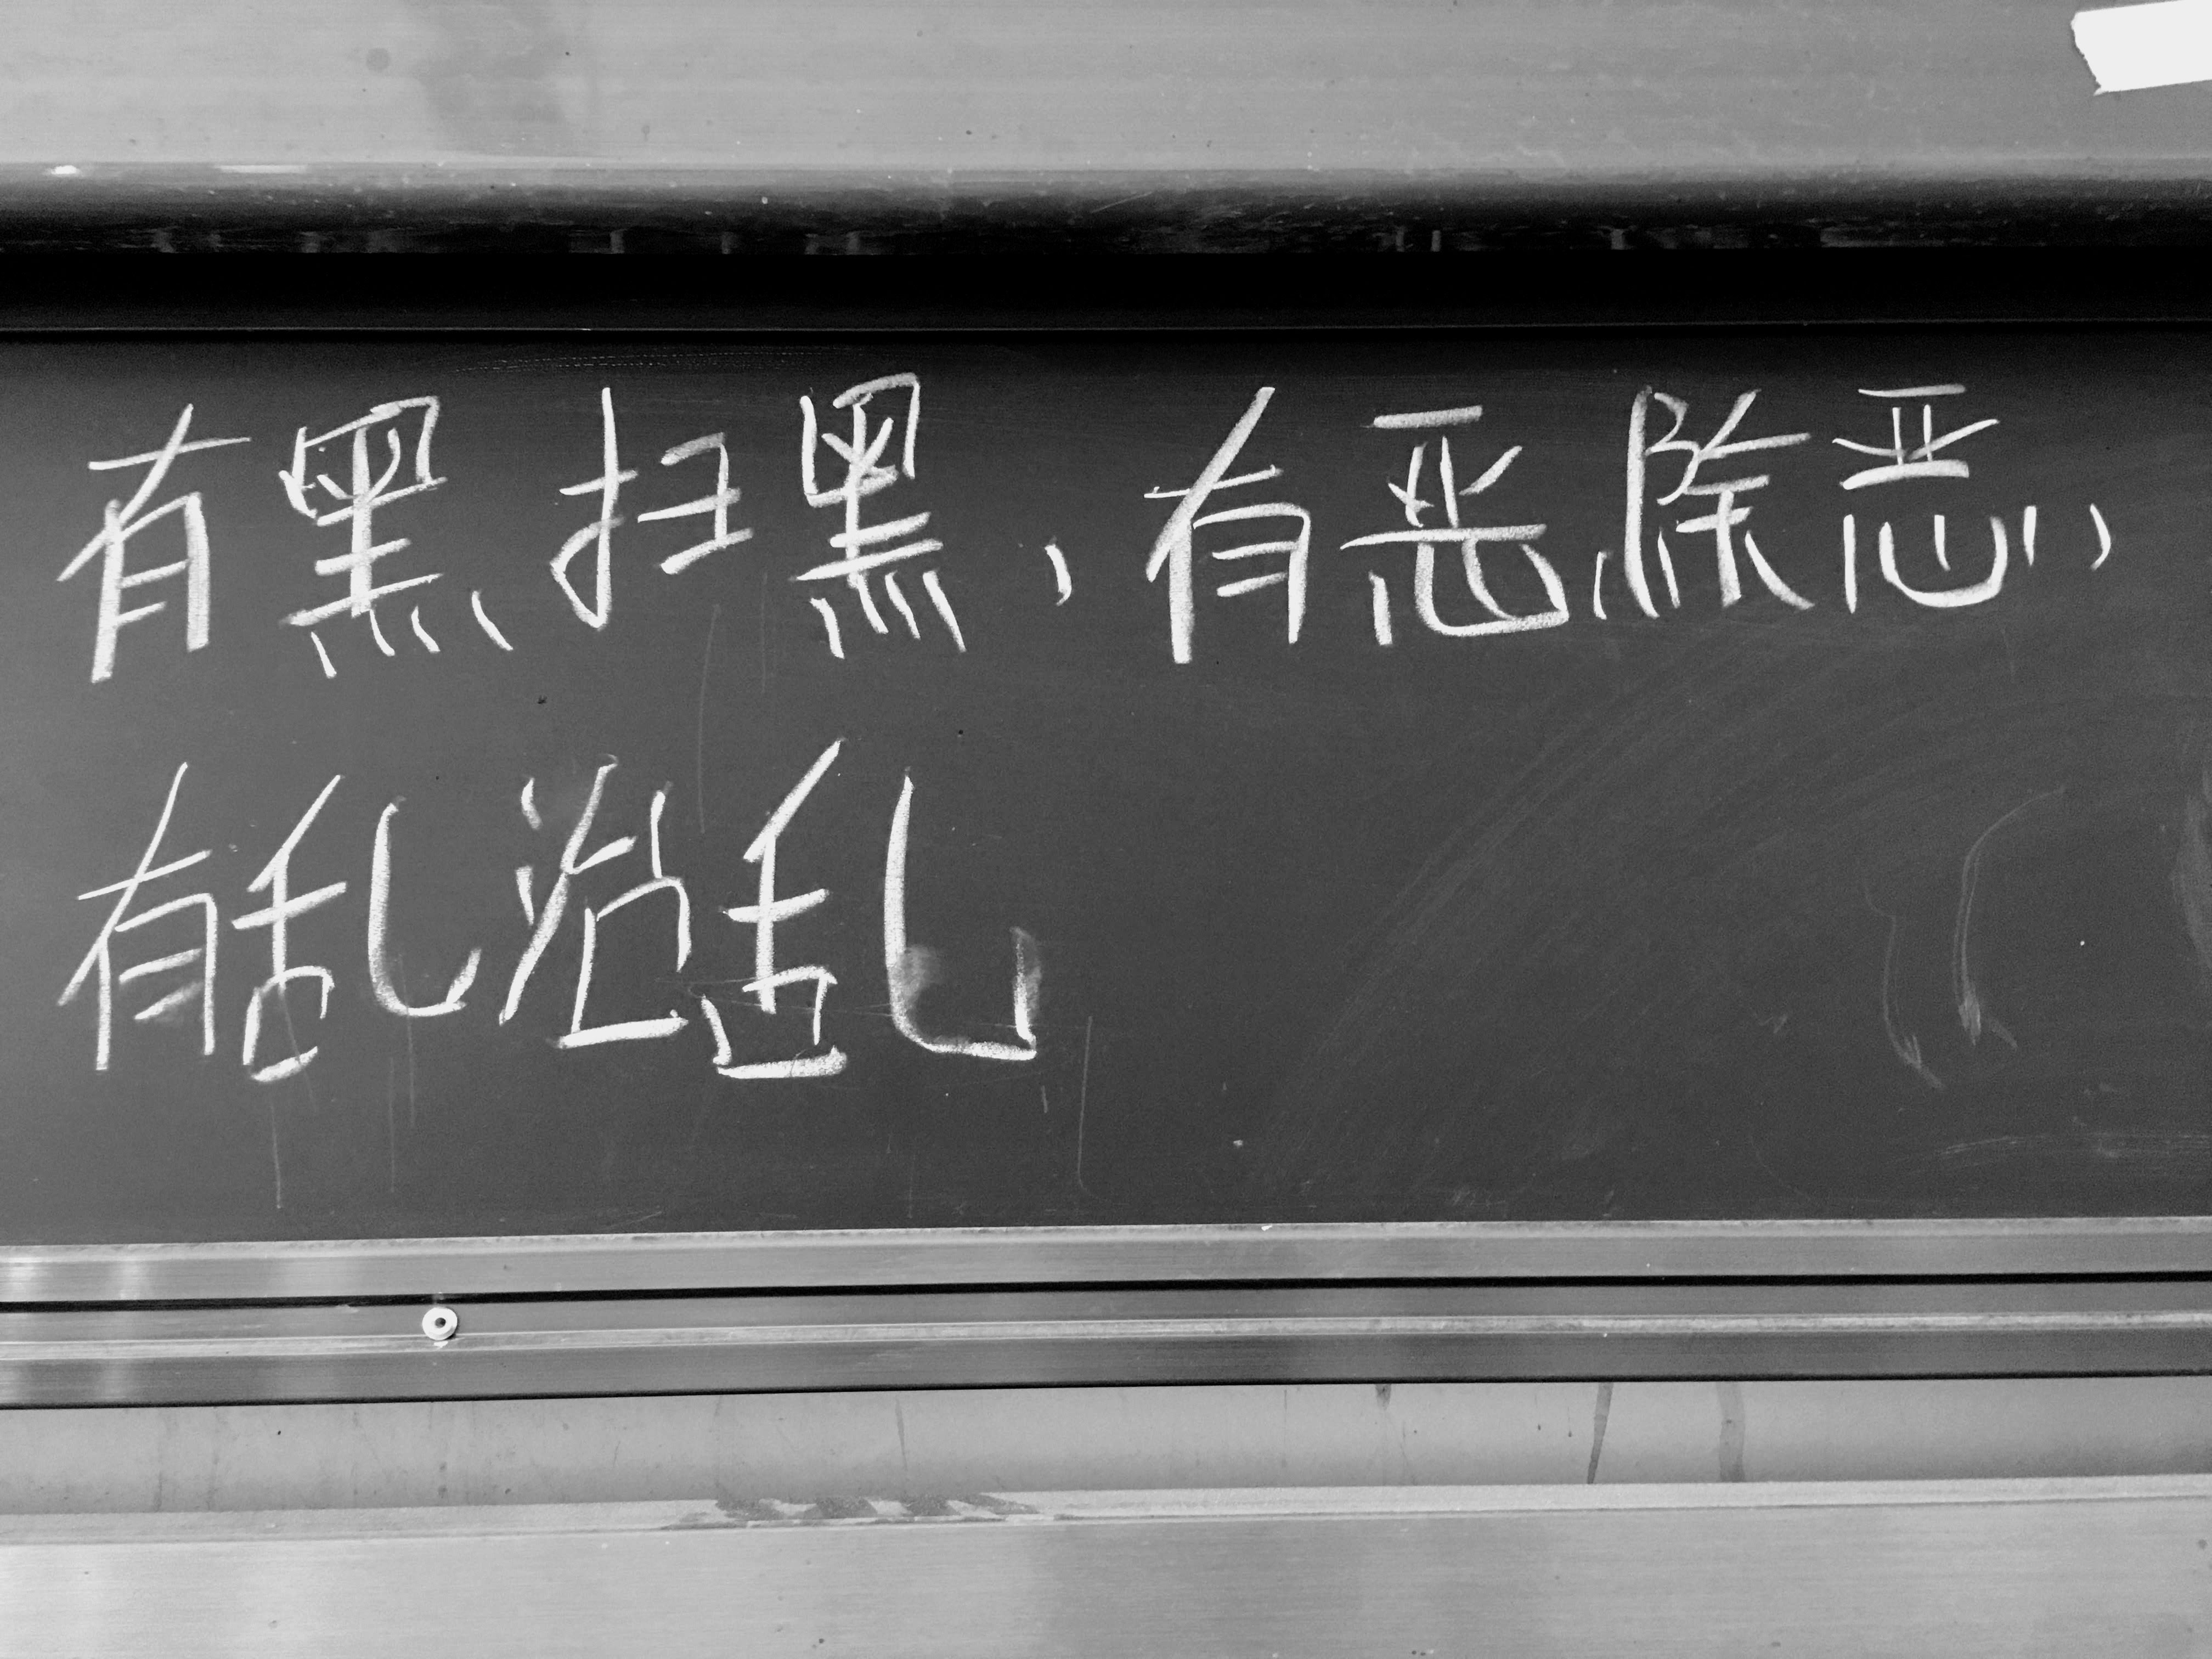 有黑扫黑,有恶除恶,
有乱治乱